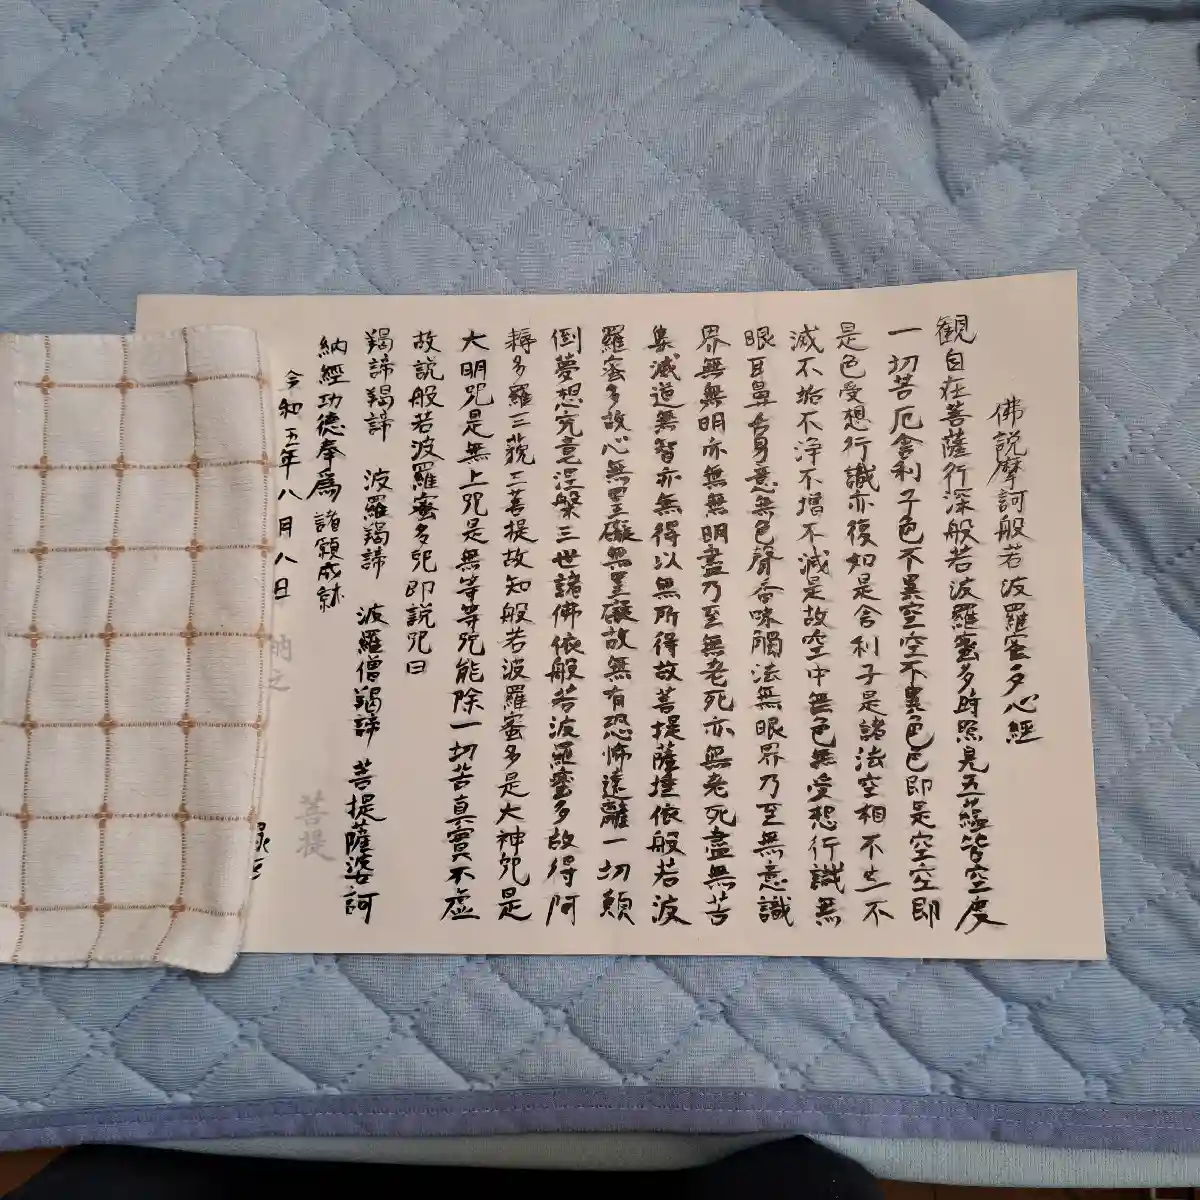 佛説摩訶般若波羅蜜多心經
観自在菩薩行深般若波羅蜜多時照見五蘊皆空度
一切苦厄舎利子色不異空空不異色色即是空空即
是色受想行識亦復如是舎利子是諸法空相不生不
滅不垢不浄不増不減是故空中無色無受想行識無
眼耳鼻舌身意無色聲香味觸法無眼界乃至無意識
界無無明亦無無明盡乃至無老死亦無老死盡無苦
集滅道無智亦無得以無所得故菩提薩埵依般若波
羅蜜多故心無罣礙無罣礙故無有恐怖遠離一切顛
倒夢想究竟涅槃三世諸佛依般若波羅蜜多故得阿
耨多羅三藐三菩提故知般若波羅蜜多是大神咒是
大明咒是無上咒是無等等咒能除一切苦真實不虚
故説般若波羅蜜多咒即説咒曰
羯諦羯諦 波羅羯諦 波羅僧羯諦 菩提薩婆訶
納經功徳奉爲諸願成就
菩提
令和五年八月八日
納之